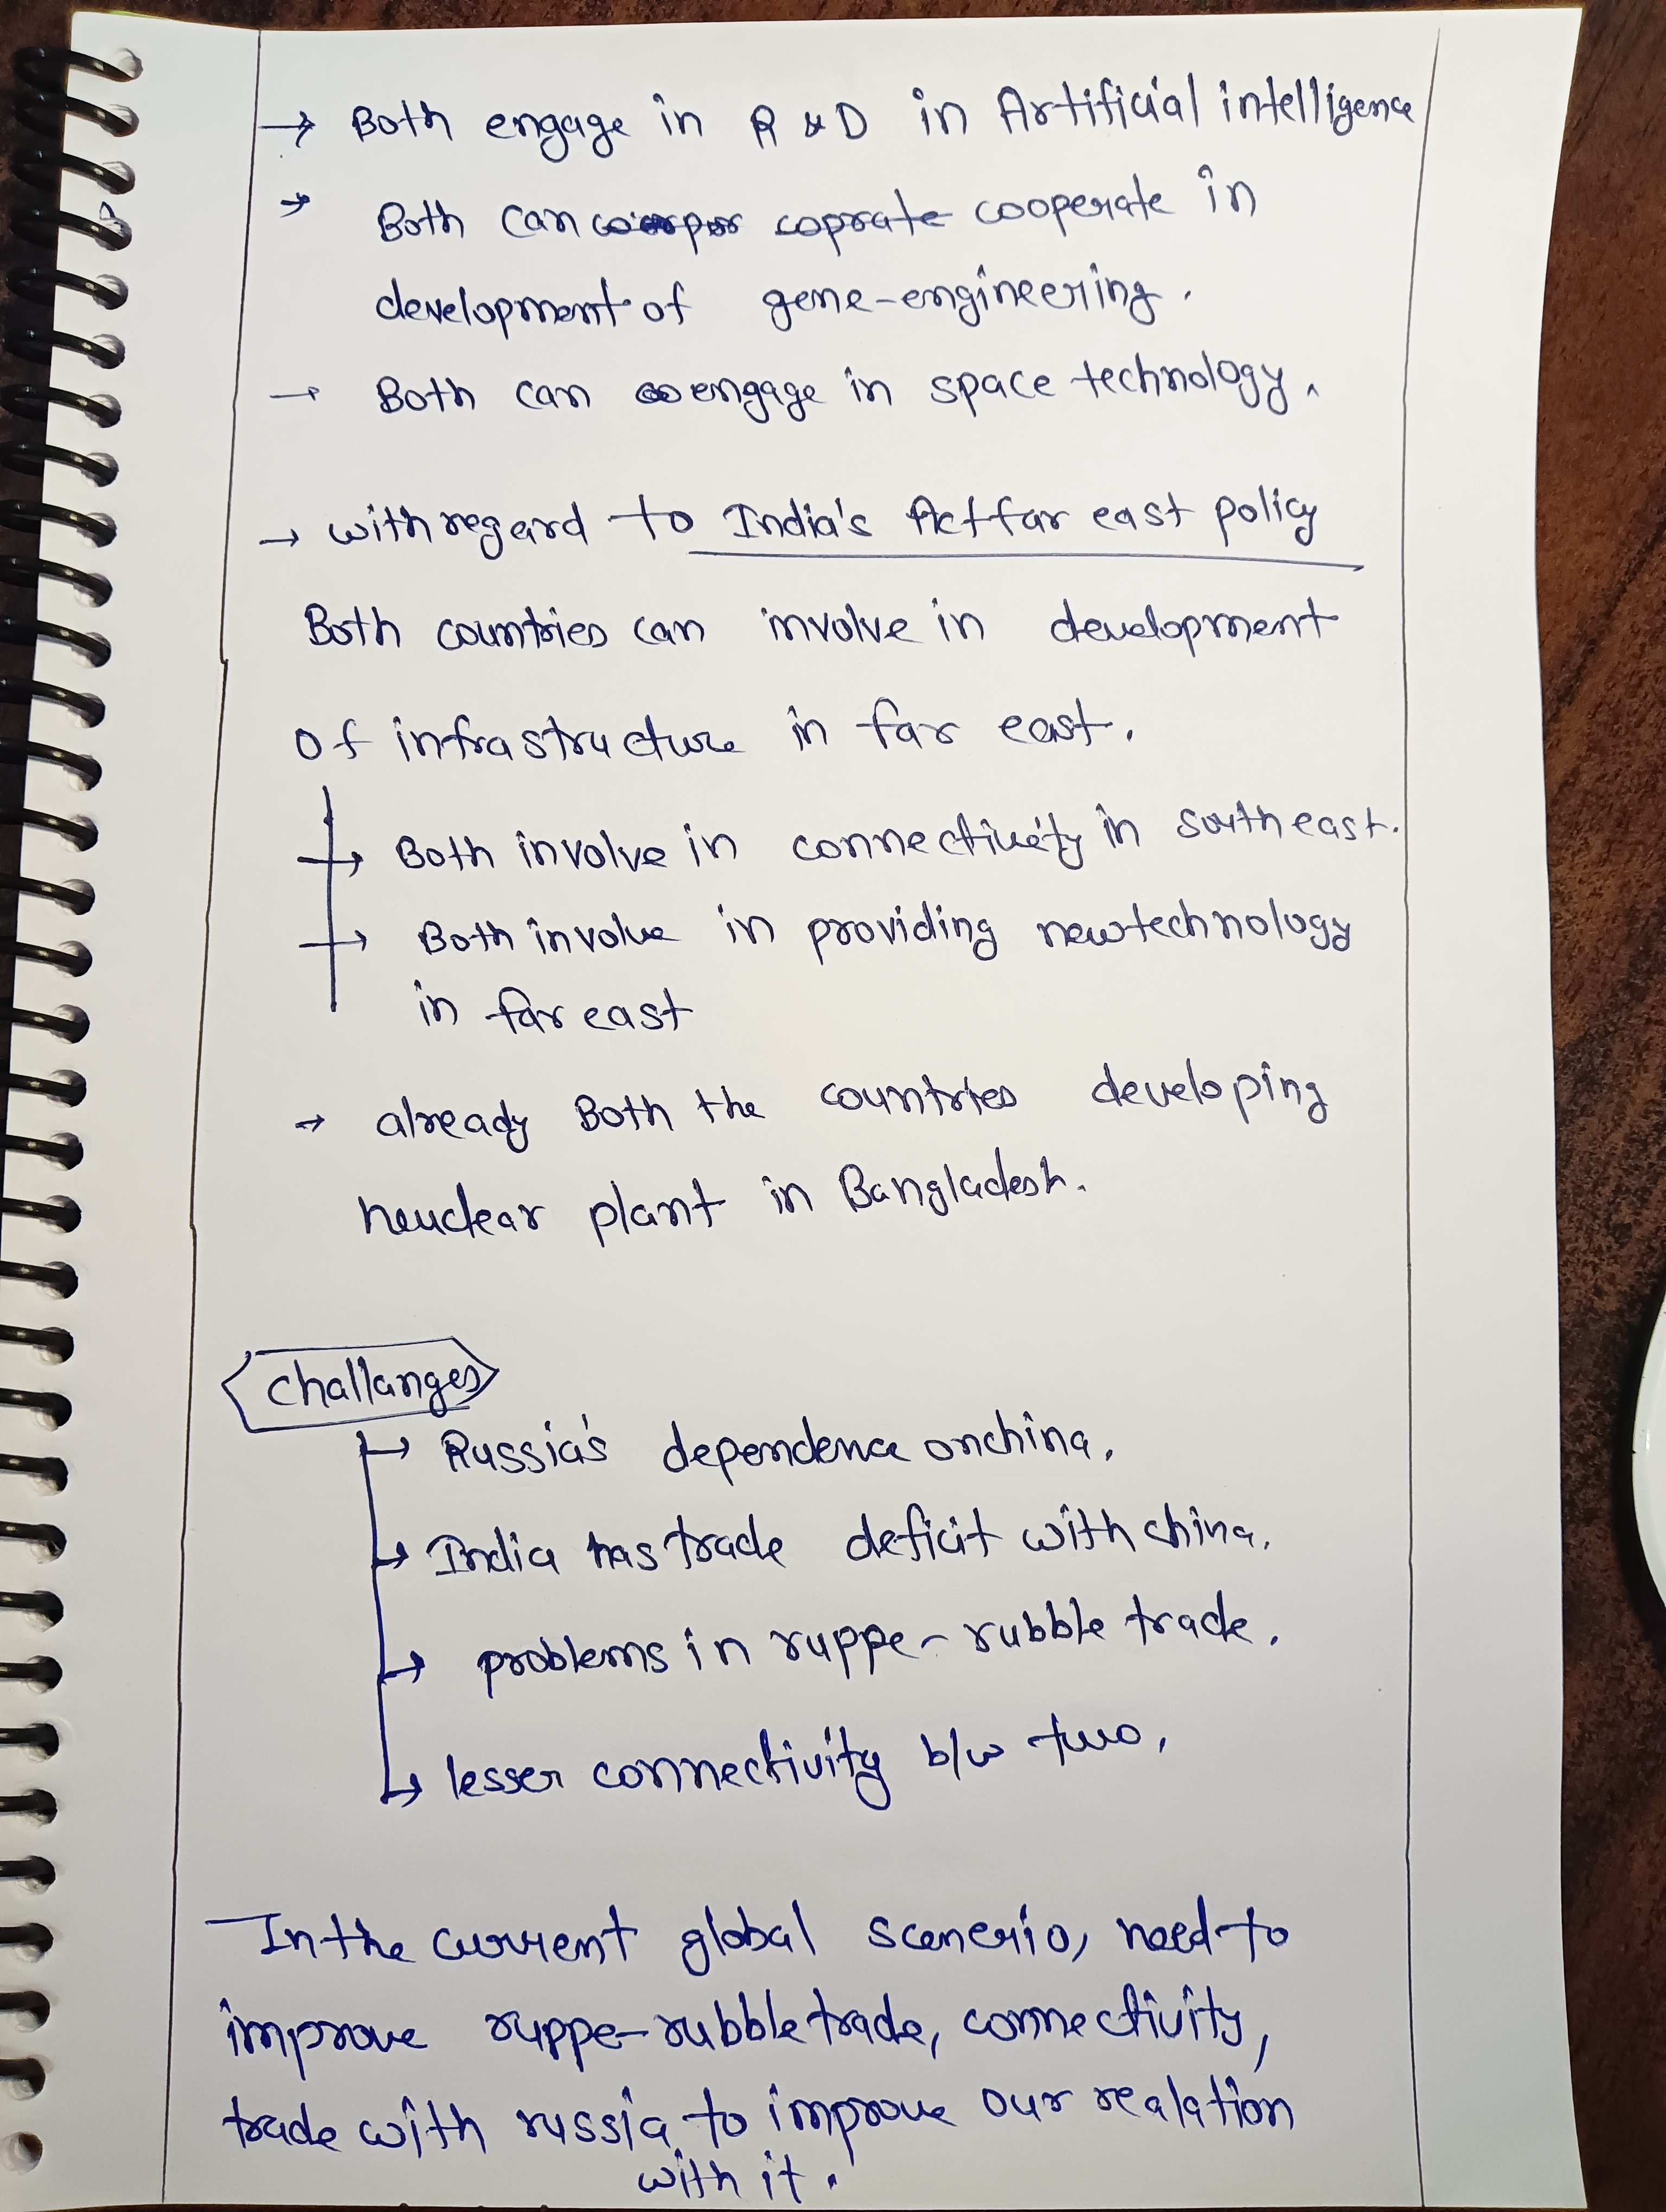 → Both engage in R & D in Artificial intelligence
→ Both can cooperate in
development of gene-engineering.
→ Both can engage in space technology.
→ with regard to India's Act far east policy
Both countries can involve in development
of infrastructure in far east.
→ Both involve in connectivity in south east.
→ Both involve in providing new technology
in far east
→ already Both the countries developing
neuclear plant in Bangladesh.
Challanges
→ Russia's dependence on china.
→ India has trade deficit with china.
→ problems in ruppe - rubble trade.
→ lesser connectivity b/w two.
In the current global scenerio, need to
improve ruppe-rubble trade, connectivity,
trade with russia to improve our realation
with it.